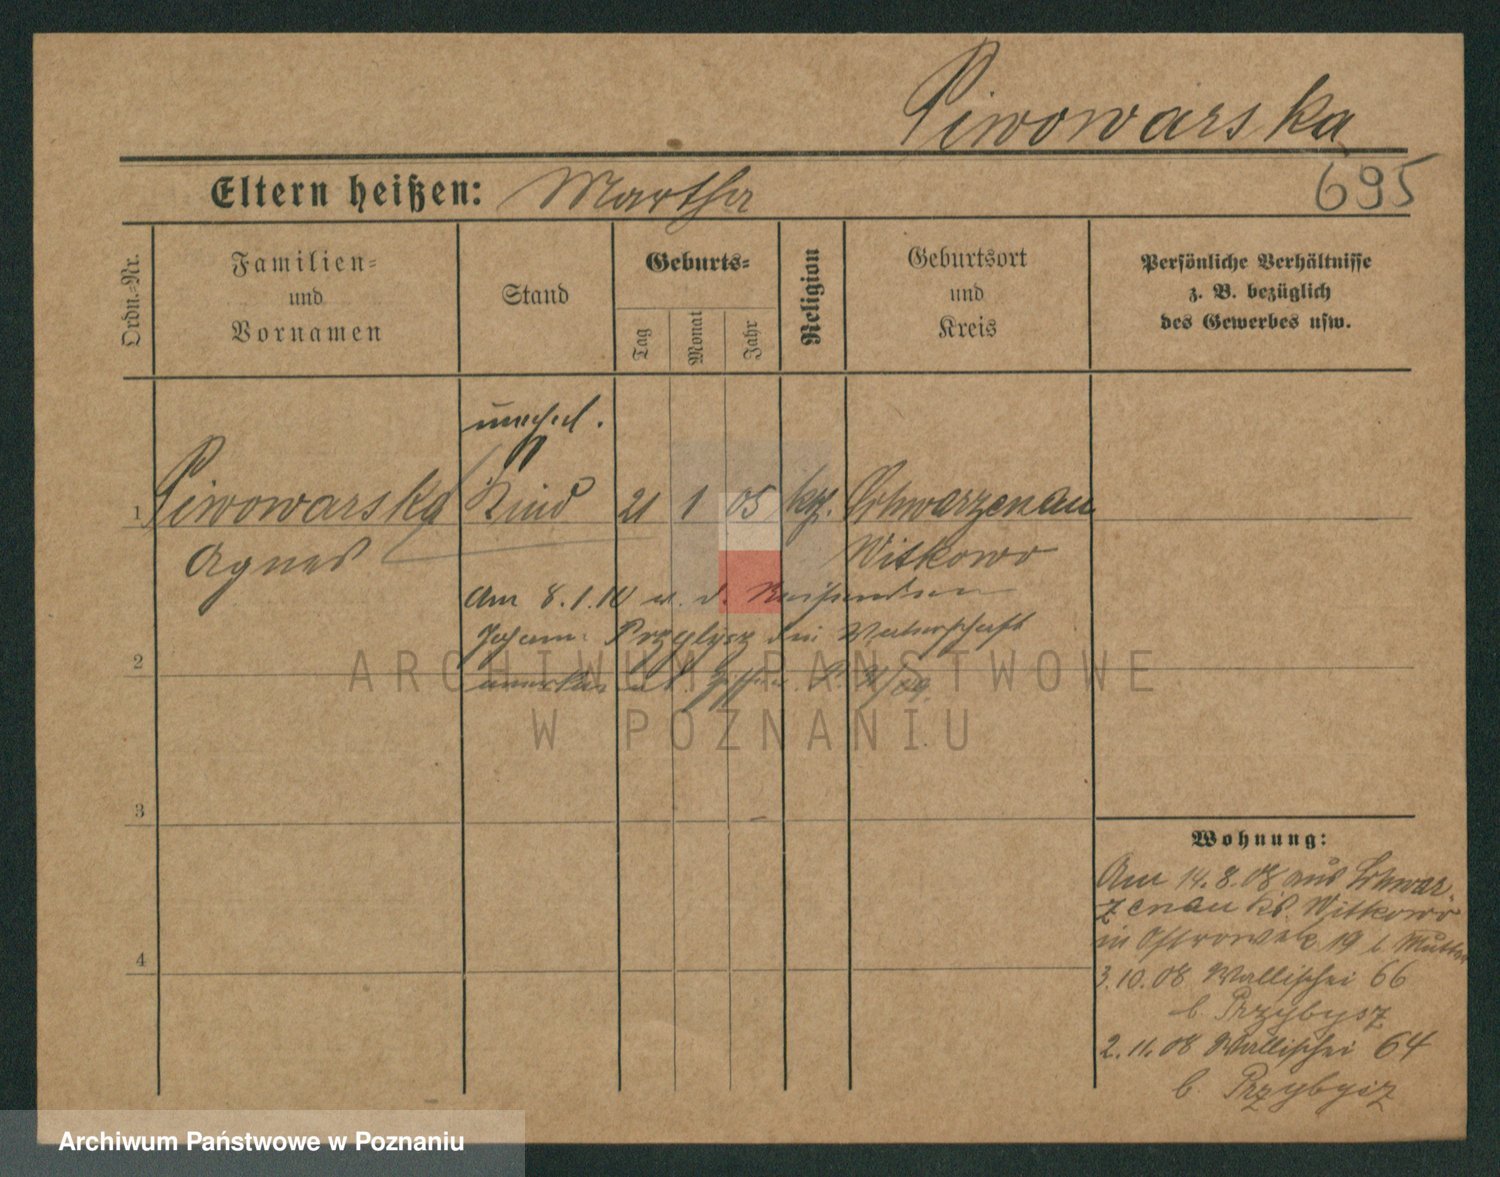 Piwowarska
695
Eltern heißen: Martha
Ordn.-Nr.
Familien-
und
Vornamen
Stand
Geburts-
Tag
Monat
Jahr
Religion
Geburtsort
und
Kreis
Persönliche Verhältnisse
z. B. bezüglich
des Gewerbes usw.
unehel.
1 Piwowarska Kind 21 1 05 kt. Schwarzenau
Agnes Witkowo
Am 8.1.10 d.
Johann die Vaterschaft
2
3
4
Wohnung:
Am 14.8.08 aus Schwar-
zenau Kr. Witkowo
in Ostrowek 19 b. Mutter
3.10.08 Wallischei 66
b. Przybysz
2.11.08 Wallischei 64
b. Przybysz
ARCHIWUM PAŃSTWOWE
W POZNANIU
Archiwum Państwowe w Poznaniu